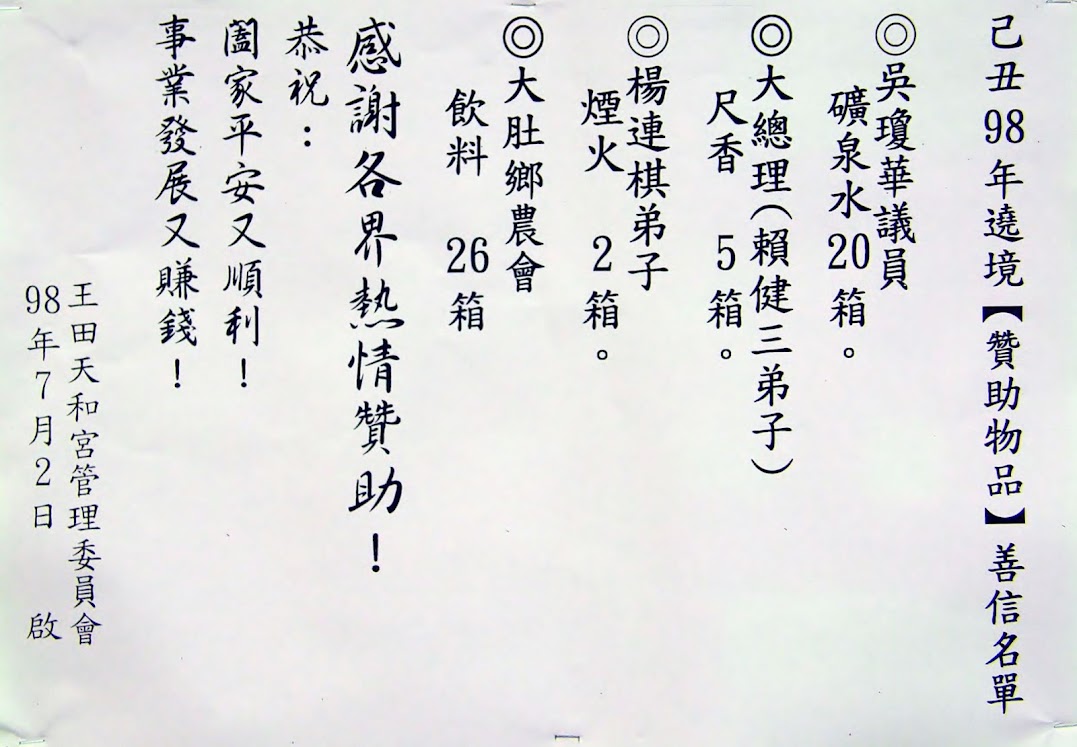 己丑98年遶境【贊助物品】善信名單
◎吳瓊華議員
礦泉水20箱。
◎大總理(賴健三弟子)
尺香 5箱。
◎楊連棋弟子
煙火 2箱。
◎大肚鄉農會
飲料 26箱
感謝各界熱情贊助!
恭祝:
闔家平安又順利!
事業發展又賺錢!
王田天和宮管理委員會
98年7月2日 啟